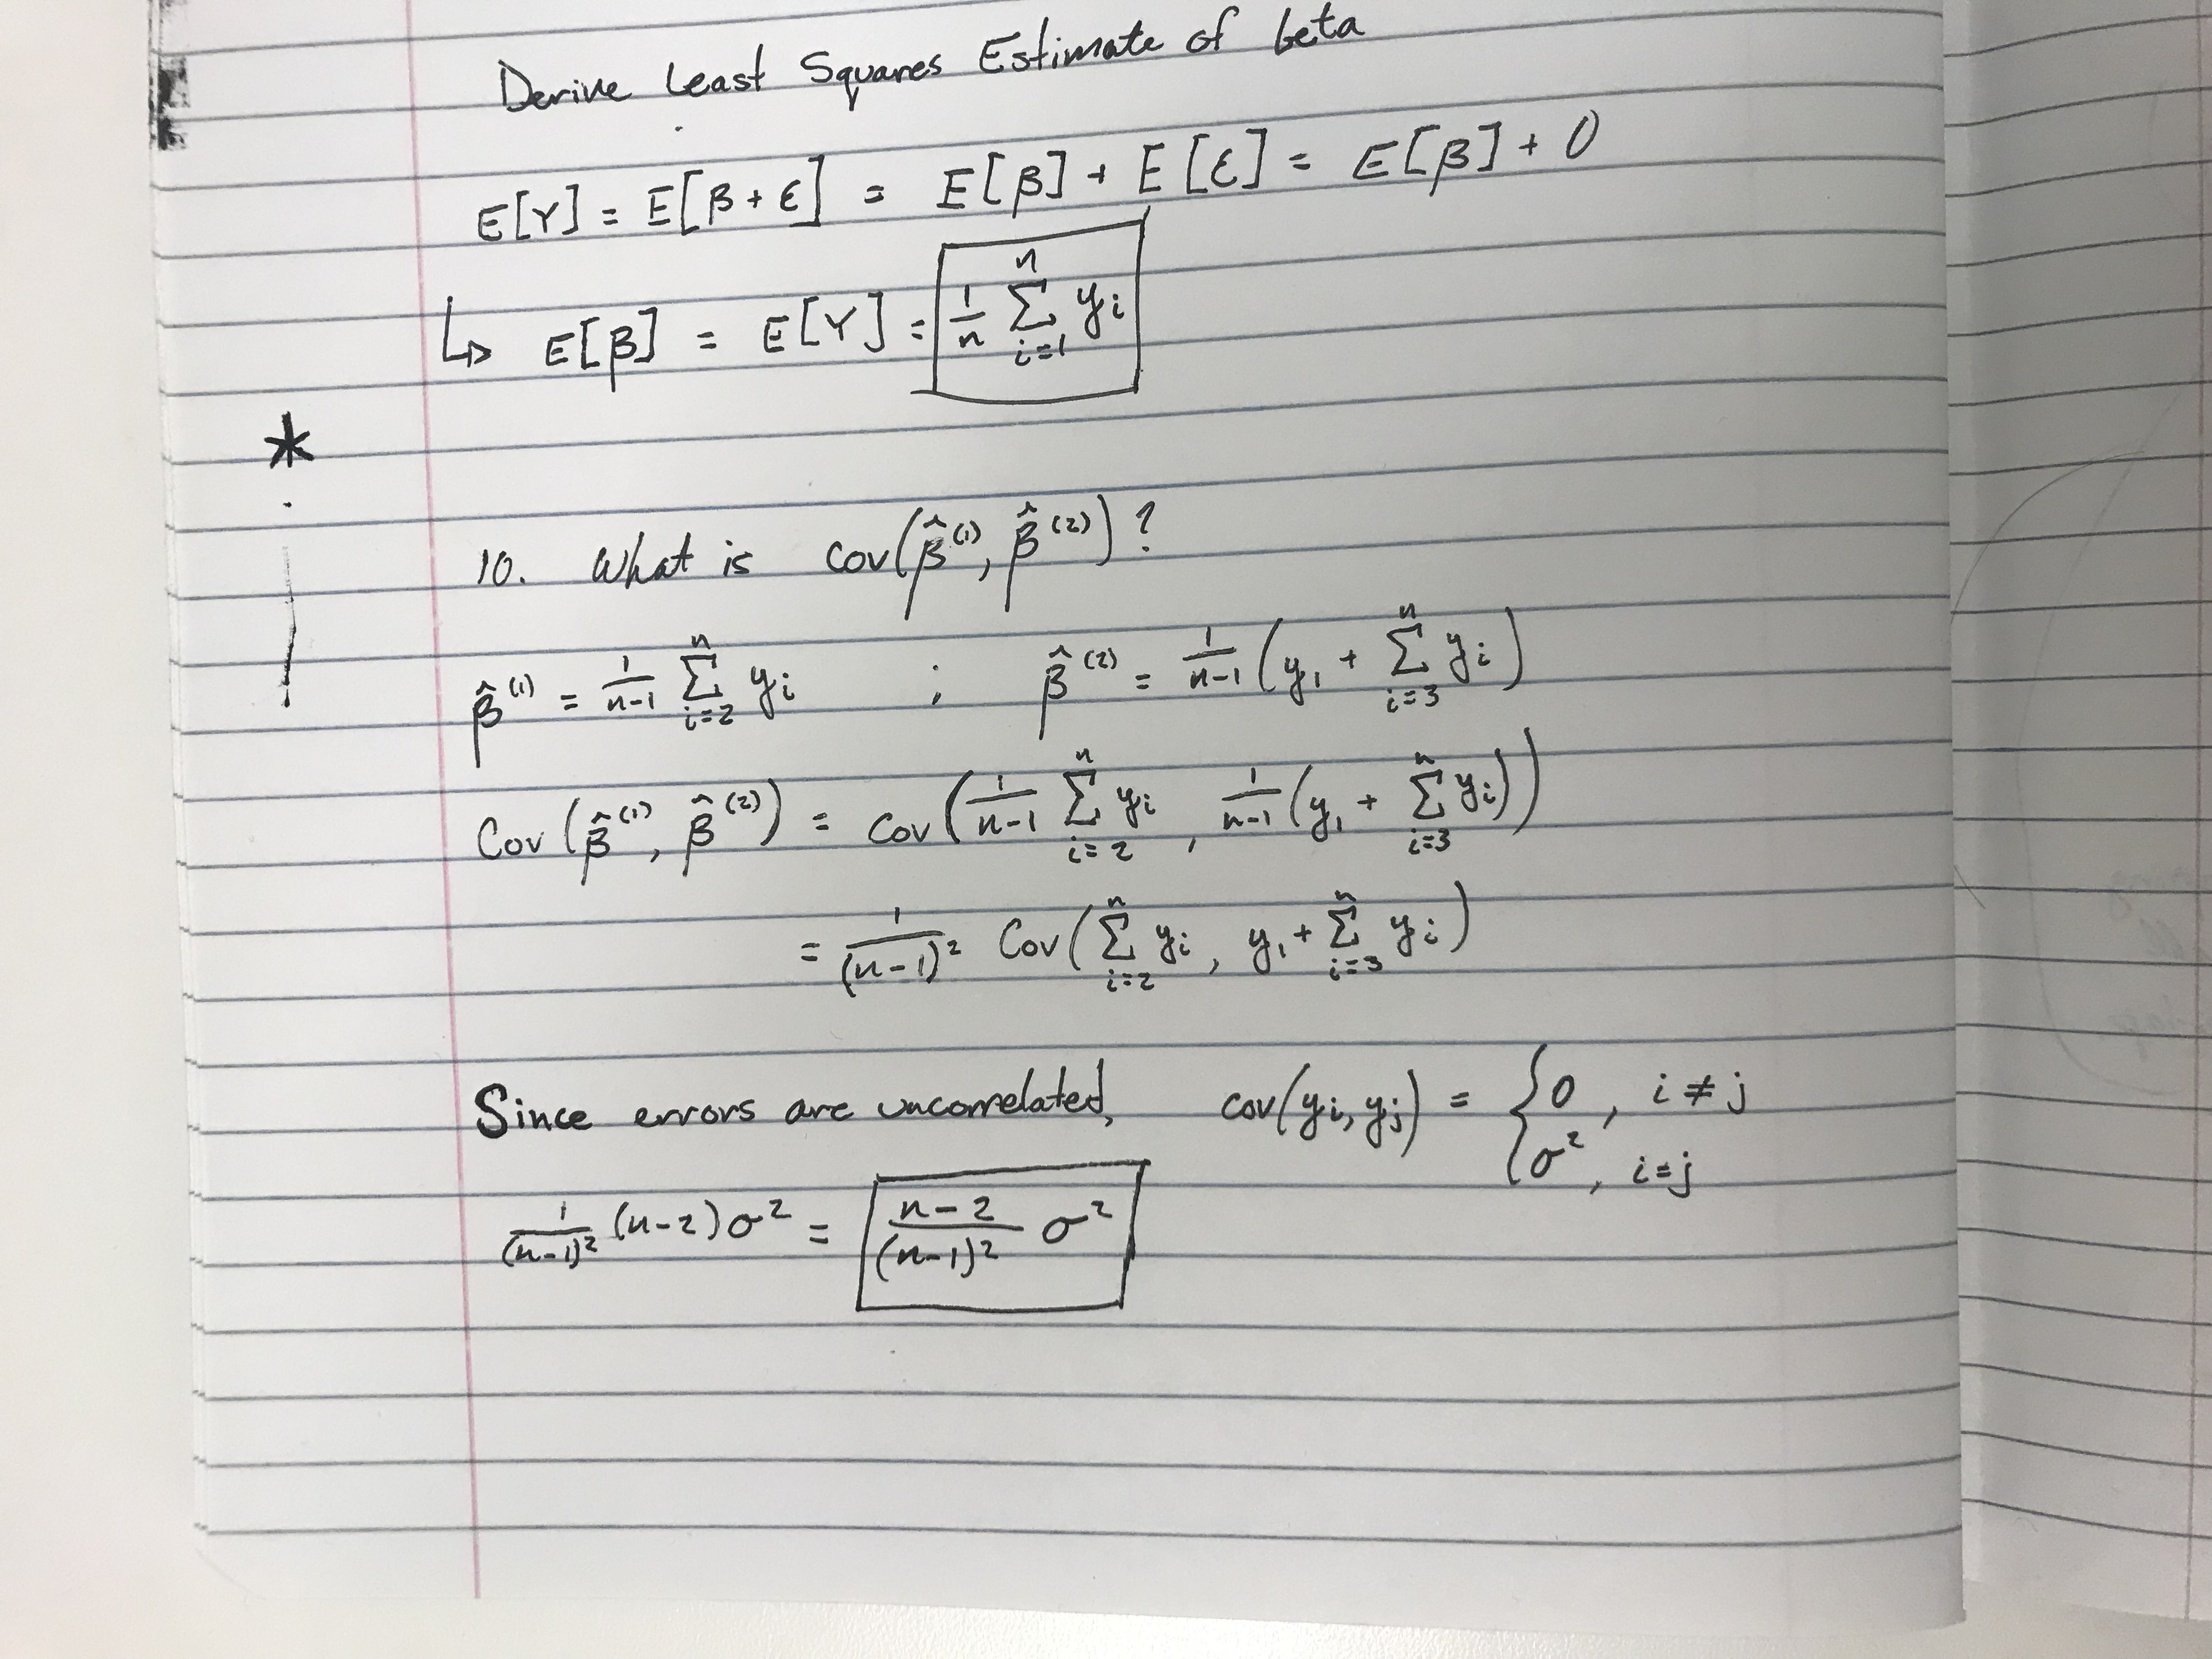 Derive Least Squares Estimate of beta
E[Y] = E[β + ε] = E[β] + E[ε] = E[β] + 0
↳ E[β] = E[Y] = 1/n ∑_{i=1}^{n} y_i
*
10. What is Cov(β̂^(1), β̂^(2))?
β̂^(1) = 1/(n-1) ∑_{i=2}^{n} y_i ; β̂^(2) = 1/(n-1) (y_1 + ∑_{i=3}^{n} y_i)
Cov(β̂^(1), β̂^(2)) = Cov(1/(n-1) ∑_{i=2}^{n} y_i , 1/(n-1) (y_1 + ∑_{i=3}^{n} y_i))
= 1/(n-1)² Cov(∑_{i=2}^{n} y_i , y_1 + ∑_{i=3}^{n} y_i)
Since errors are uncorrelated, Cov(y_i, y_j) = { 0 , i ≠ j
{ σ² , i = j
1/(n-1)² (n-2)σ² = (n-2)/(n-1)² σ²